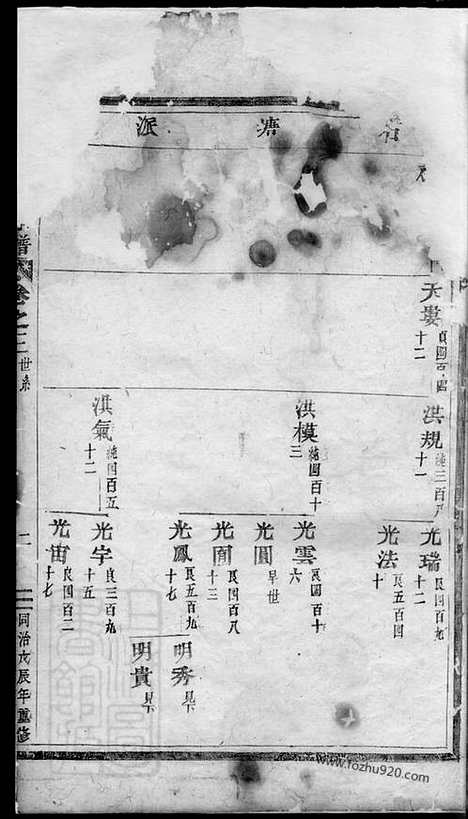 塘
派
天婁 貞國百四
十二
洪規 純三百八
十一
洪模 純四百十
三
洪氣 純四百五
十二
光瑞 良四百九
十二
光法 良五百四
十
光雲 良國百十
六
光圓 早世
光圃 良四百八
十三
光鳳 良五百九
十七
光宇 良三百九
十五
光宙 良四百二
十七
明秀 見下
明貴 見下
譜
卷之三 世系
二
同治戊辰年重修
www.fozhu920.com